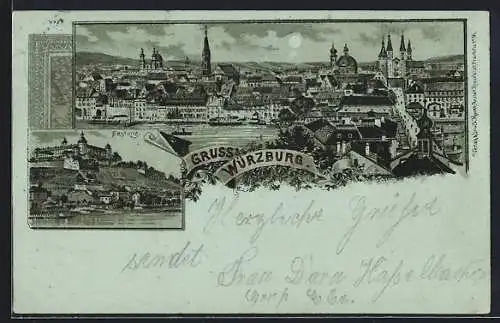 Festung
GRUSS AUS
WÜRZBURG
Herzliche Grüße
sendet Frau Dora Haßelbacher